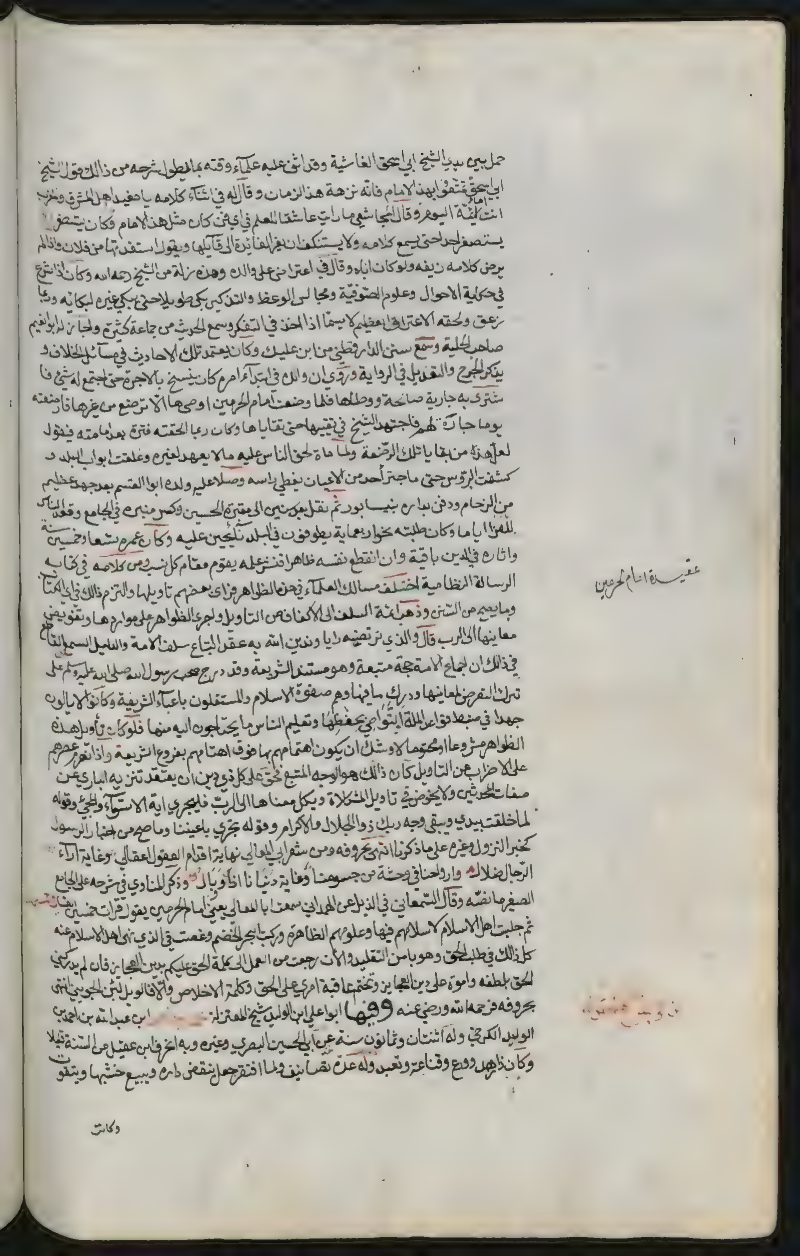 حمل بين يدي الشيخ ابي اسحق الغاشية وقد اثنى عليه علماء وقته بما يطول شرحه من ذالك قول الشيخ
ابي اسحق تمتعوا بهذا الامام فانه نزهة هذا الزمان وقال له في اثناء كلامه يا مفيد اهل المشرق والمغرب
انت امام الائمة اليوم وقال المجاشعي ما رايت عاشقا للعلم في اي فن كان مثل هذا الامام وكان لا
يستصغر احدا حتى يسمع كلامه ولا يستنكف ان يعزى الفائدة الى قايلها ويقول استفدتها من فلان واذا لم
يرض كلامه زيفه ولو كان اباه وقال في اعتراض على والده وهذه زلة من الشيخ رحمه الله وكان اذا شرع
في حكاية الاحوال وعلوم الصوفية ومجالس الوعظ والتذكير بكى طويلا حتى يبكي غيره لبكائه وربما
زعق ولحقه الاحتراق العظيم لا سيما اذا اخذ في التفكر وسمع الحديث من جماعة كثيرة واجاز له ابو نعيم
صاحب الحلية وسمع سنن الدارقطني من ابن عليك وكان يعتمد تلك الاحاديث في مسائل الخلاف و
يذكر الجرح والتعديل في الرواية وروي ان والده في ابتداء امره كان ينسخ بالاجرة حتى اجتمع له شيء فا
شترى به جارية صالحة ووطئها فلما وضعت امام الحرمين اوصاها الا ترضع من غيرها فارضعته
يوما جارة لهم فاجتهد الشيخ في تقييها حتى تقاياها وكان ربما لحقته فترة بعد امامته فيقول
لعل هذا من بقايا تلك الرضعة ولما مات لحق الناس عليه ما لا يعهد لغيره وغلقت ابواب البلد و
كشفت الرؤس حتى ما اجترأ احد من الاعيان يغطي راسه وصلى عليه ولده ابو القسم بعد جهد عظيم
من الزحام ودفن بداره بنيسابور ثم نقل بعد سنين الى مقبرة الحسين وكسر منبره في الجامع وقعد الناس
للعزا اياما وكان طلبته نحو اربعماية يطوفون في البلد نائحين عليه وكان عمره تسعا وخمسين سنة
واثاره في الدين باقية وان انقطع نسله ظاهرا فنشر علمه يقوم مقام كل نسب ومن كلامه في كتاب
الرسالة النظامية اختلف مسالك العلماء في هذه الظواهر فراى بعضهم تاويلها والتزم ذالك في اي الكتاب
وما يصح من السنن وذهب ائمة السلف الى الانكفاف عن التاويل واجرى الظواهر على مواردها وتفويض
معاينها الى الرب قال والذي نرتضيه رايا وندين الله به عقد اتباع سلف الامة والدليل السمعي القاطع
في ذالك ان اجماع الامة حجة متبعة وهو مستند الشريعة وقد درج صحب رسول الله صلى الله عليه وسلم على
ترك التعرض لمعاينها ودرك ما فيها وهم صفوة الاسلام والمستقلون باعباء الشريعة وكانوا لا يالون
جهدا في ضبط قواعد الملة والتواصي بحفظها وتعليم الناس ما يحتاجون اليه منها فلو كان تأويل هذه
الظواهر مشروعا او محتوما لاوشك ان يكون اهتمامهم بها فوق اهتمامهم بفروع الشريعة واذا انصرم عصرهم
على الاضراب عن التاويل كان ذالك هو الوجه المتبع فحق على كل ذي دين ان يعتقد تنزيه الباري عن
صفات المحدثين ولا يخوض في تاويل المشكلات ويكل معناها الى الرب فليجري اية الاستواء والمجيء وقوله
لما خلقت بيدي ويبقى وجه ربك ذو الجلال والاكرام وقوله تجري باعيننا وما صح من اخبار الرسول
كخبر النزول وغيره على ما ذكرنا انتهى بحروفه ومن شعر ابي المعالي نهاية اقدام العقول عقال وغاية آراء
الرجال ضلال وارواحنا في وحشة من جسومنا وغاية دنيانا اذى ووبال وذكر المناوي في شرحه على الجامع
الصغير ما نصه وقال السمعاني في الذيل عن الهمداني سمعت ابا المعالي يعني امام الحرمين يقول قرات خمسين
ثم خليت اهل الاسلام لاسلامهم فيها وعلومهم الظاهرة وركبت البحر الخضم وغصت في الذي نهى اهل الاسلام عنه
كل ذالك في طلب الحق وهربا من التقليد والان رجعت من العمل الى كلمة الحق عليكم بدين العجايز فان لم يدركني
الحق بلطفه واموت على دين العجايز وتختم عاقبة امري على الحق وكلمة الاخلاص والا فالويل لابن الجويني انتهى
بحروفه فرحمه الله ورضي عنه وفيها ابو علي ابن الوليد شيخ المعتزلة ابن عبد الله بن احمد بن
الوليد الكرخي وله اثنتان وثمانون سنة عن ابي الحسين البصري وغيره وبه انحرف ابن عقيل عن السنة قليلا
وكان ذا زهد وورع وقناعة وتعبد وله عدة تصانيف ولما افتقر جعل ينقض داره ويبيع خشبها ويتقوت
عقيدة امام الحرمين
وكانت